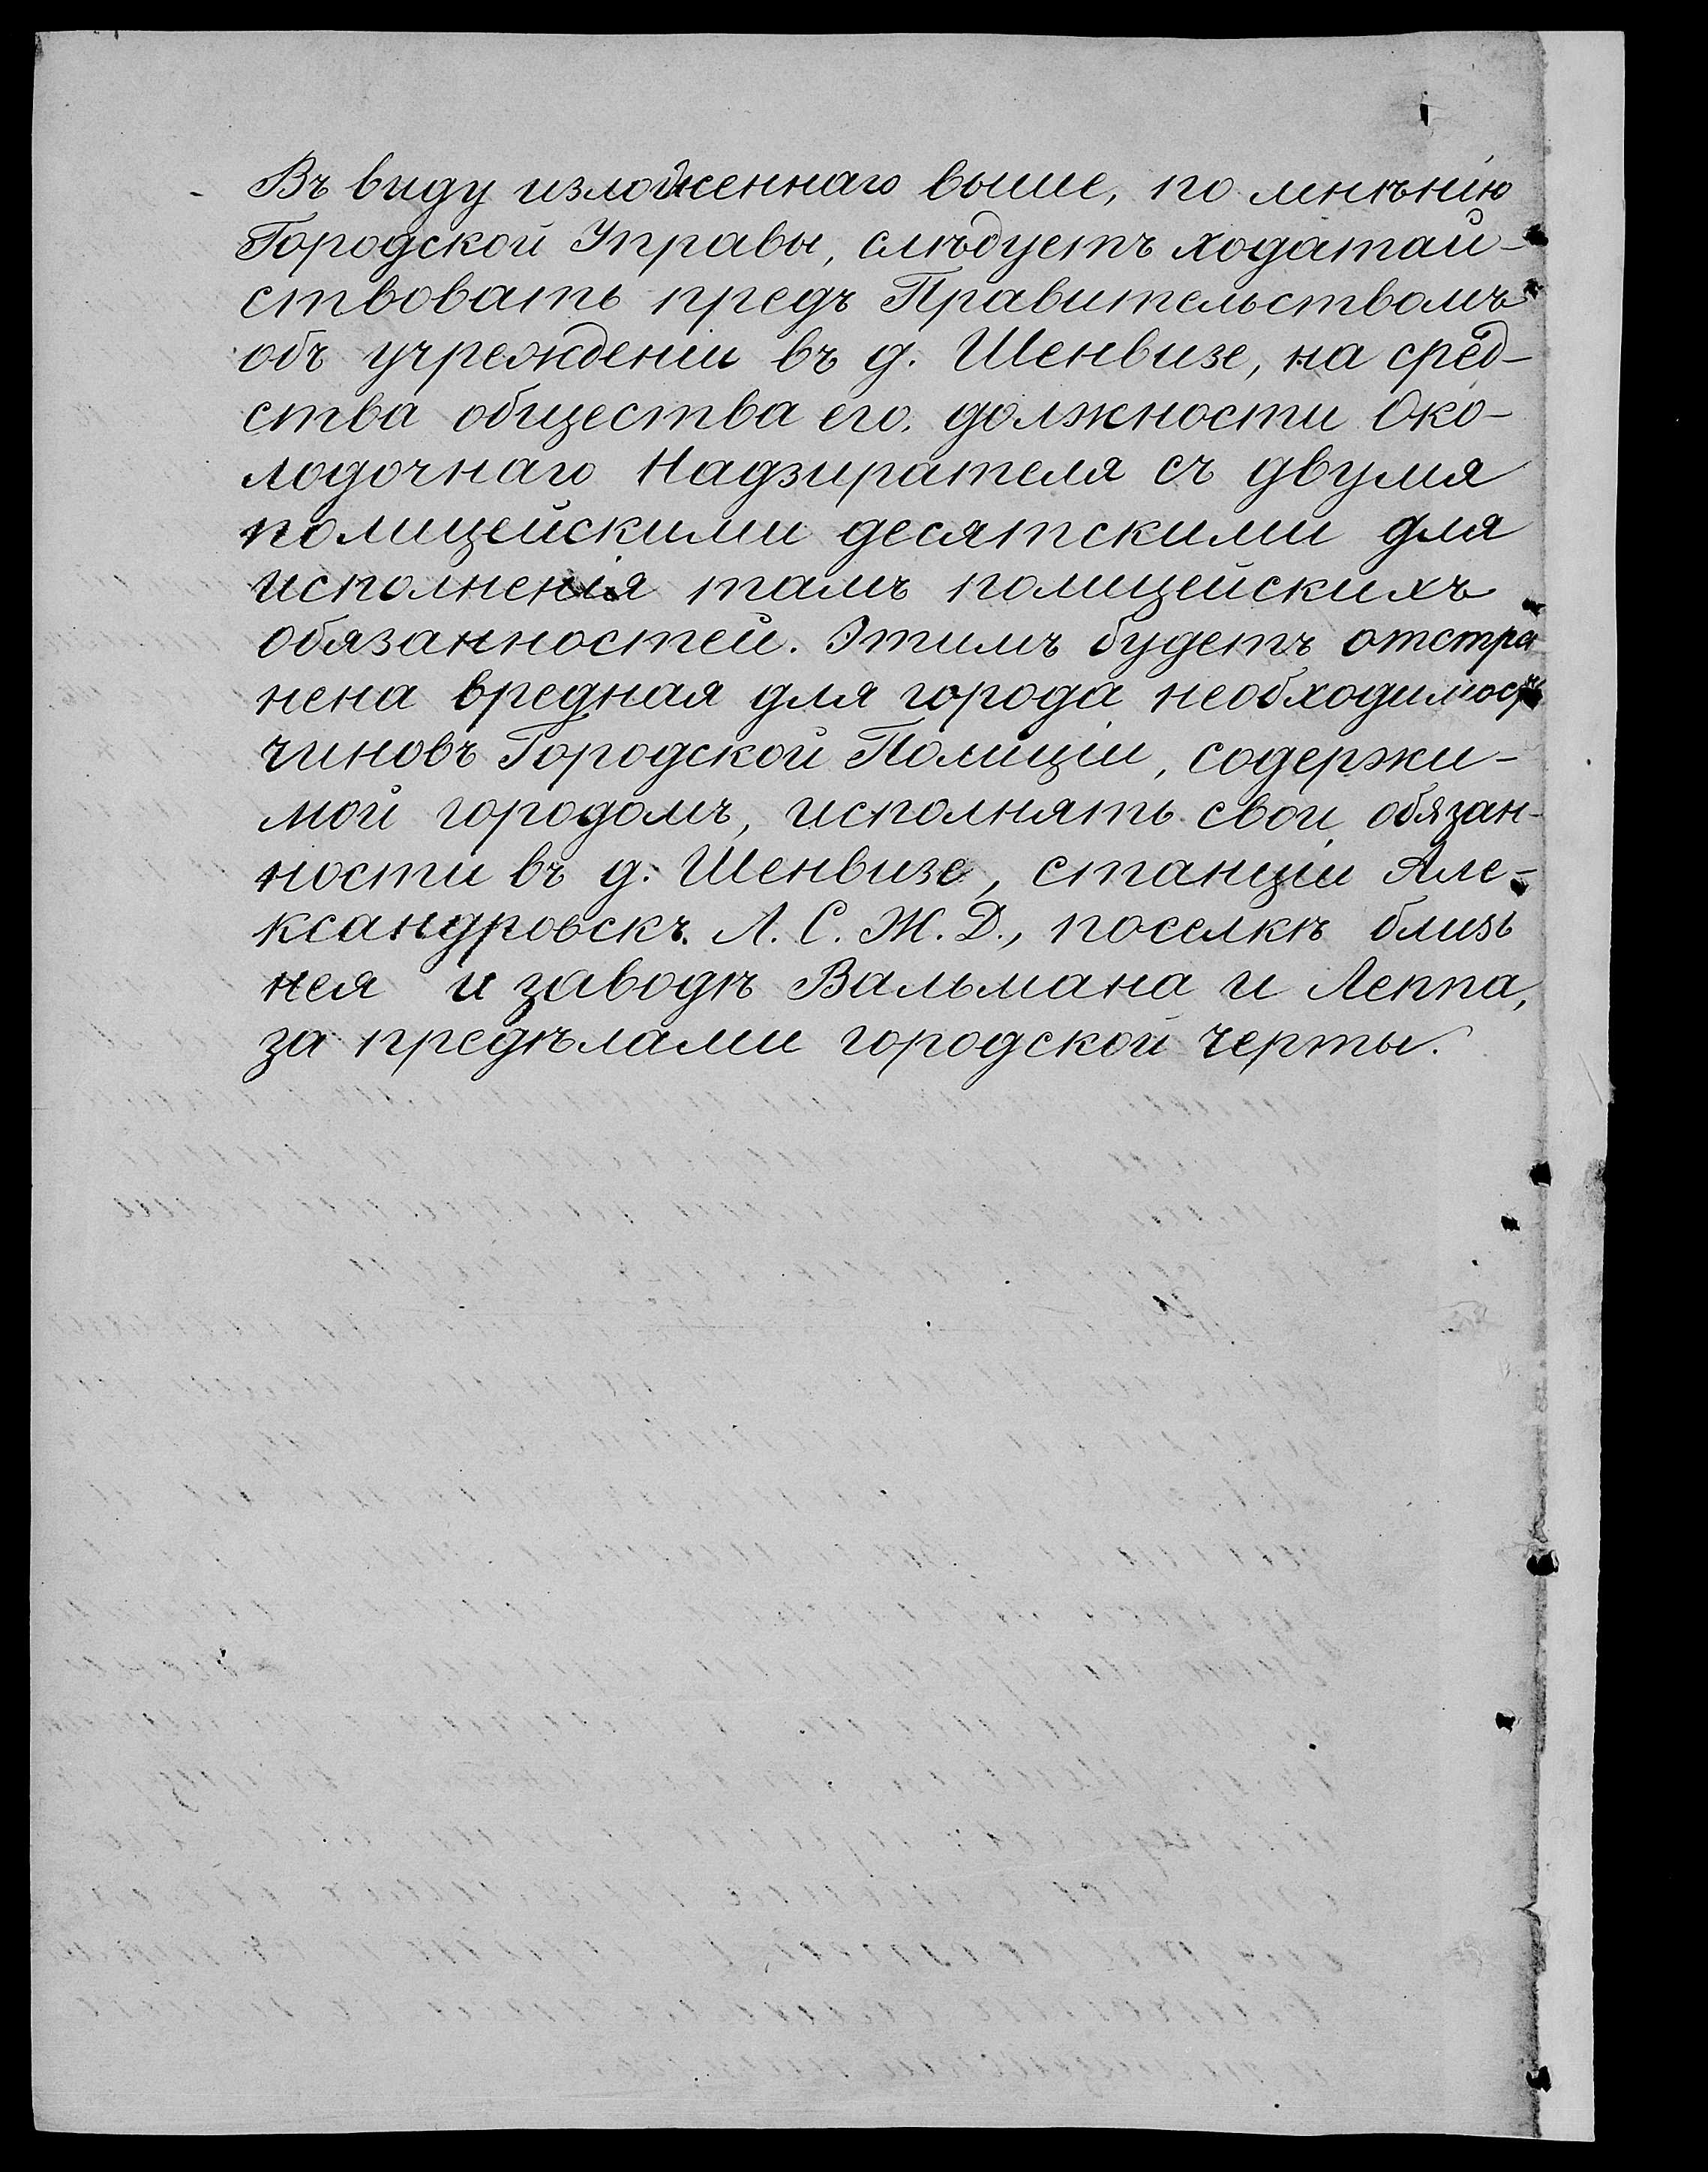 Въ виду изложеннаго выше, по мнѣнію
Городской Управы, слѣдуетъ ходатай-
ствовать предъ Правительствомъ
объ учрежденіи въ д. Шенвизе, на сред-
ства общества его, должности Око-
лодочнаго Надзирателя съ двумя
полицейскими десятскими для
исполненія тамъ полицейскихъ
обязанностей. Этимъ будетъ отстра
нена вредная для города необходимость
чиновъ Городской Полиціи, содержи-
мой городомъ, исполнять свои обязан-
ности въ д. Шенвизе, станціи Але-
ксандровскъ Л. С. Ж. Д., поселкѣ близь
нея и заводѣ Вальмана и Леппа,
за предѣлами городской черты.